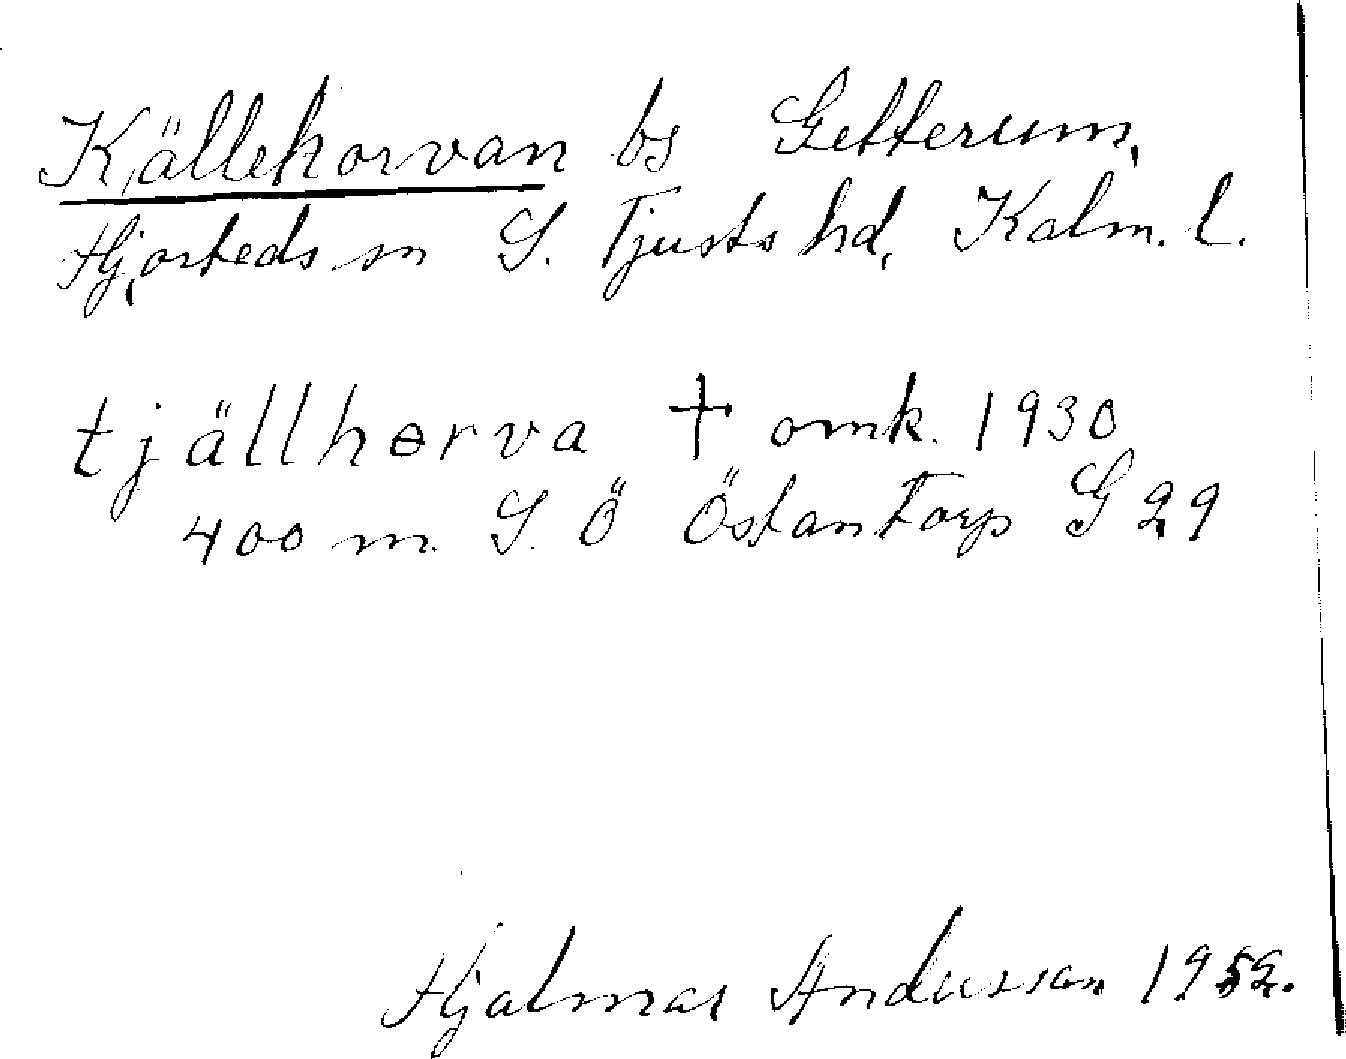 Källehorvan bs Getterum,
Hjorteds sn S. Tjusts hd, Kalm. l.
tjällhørva † omk. 1930
400 m. S. Ö Östantorp G 29
Hjalmar Andersson 1952.